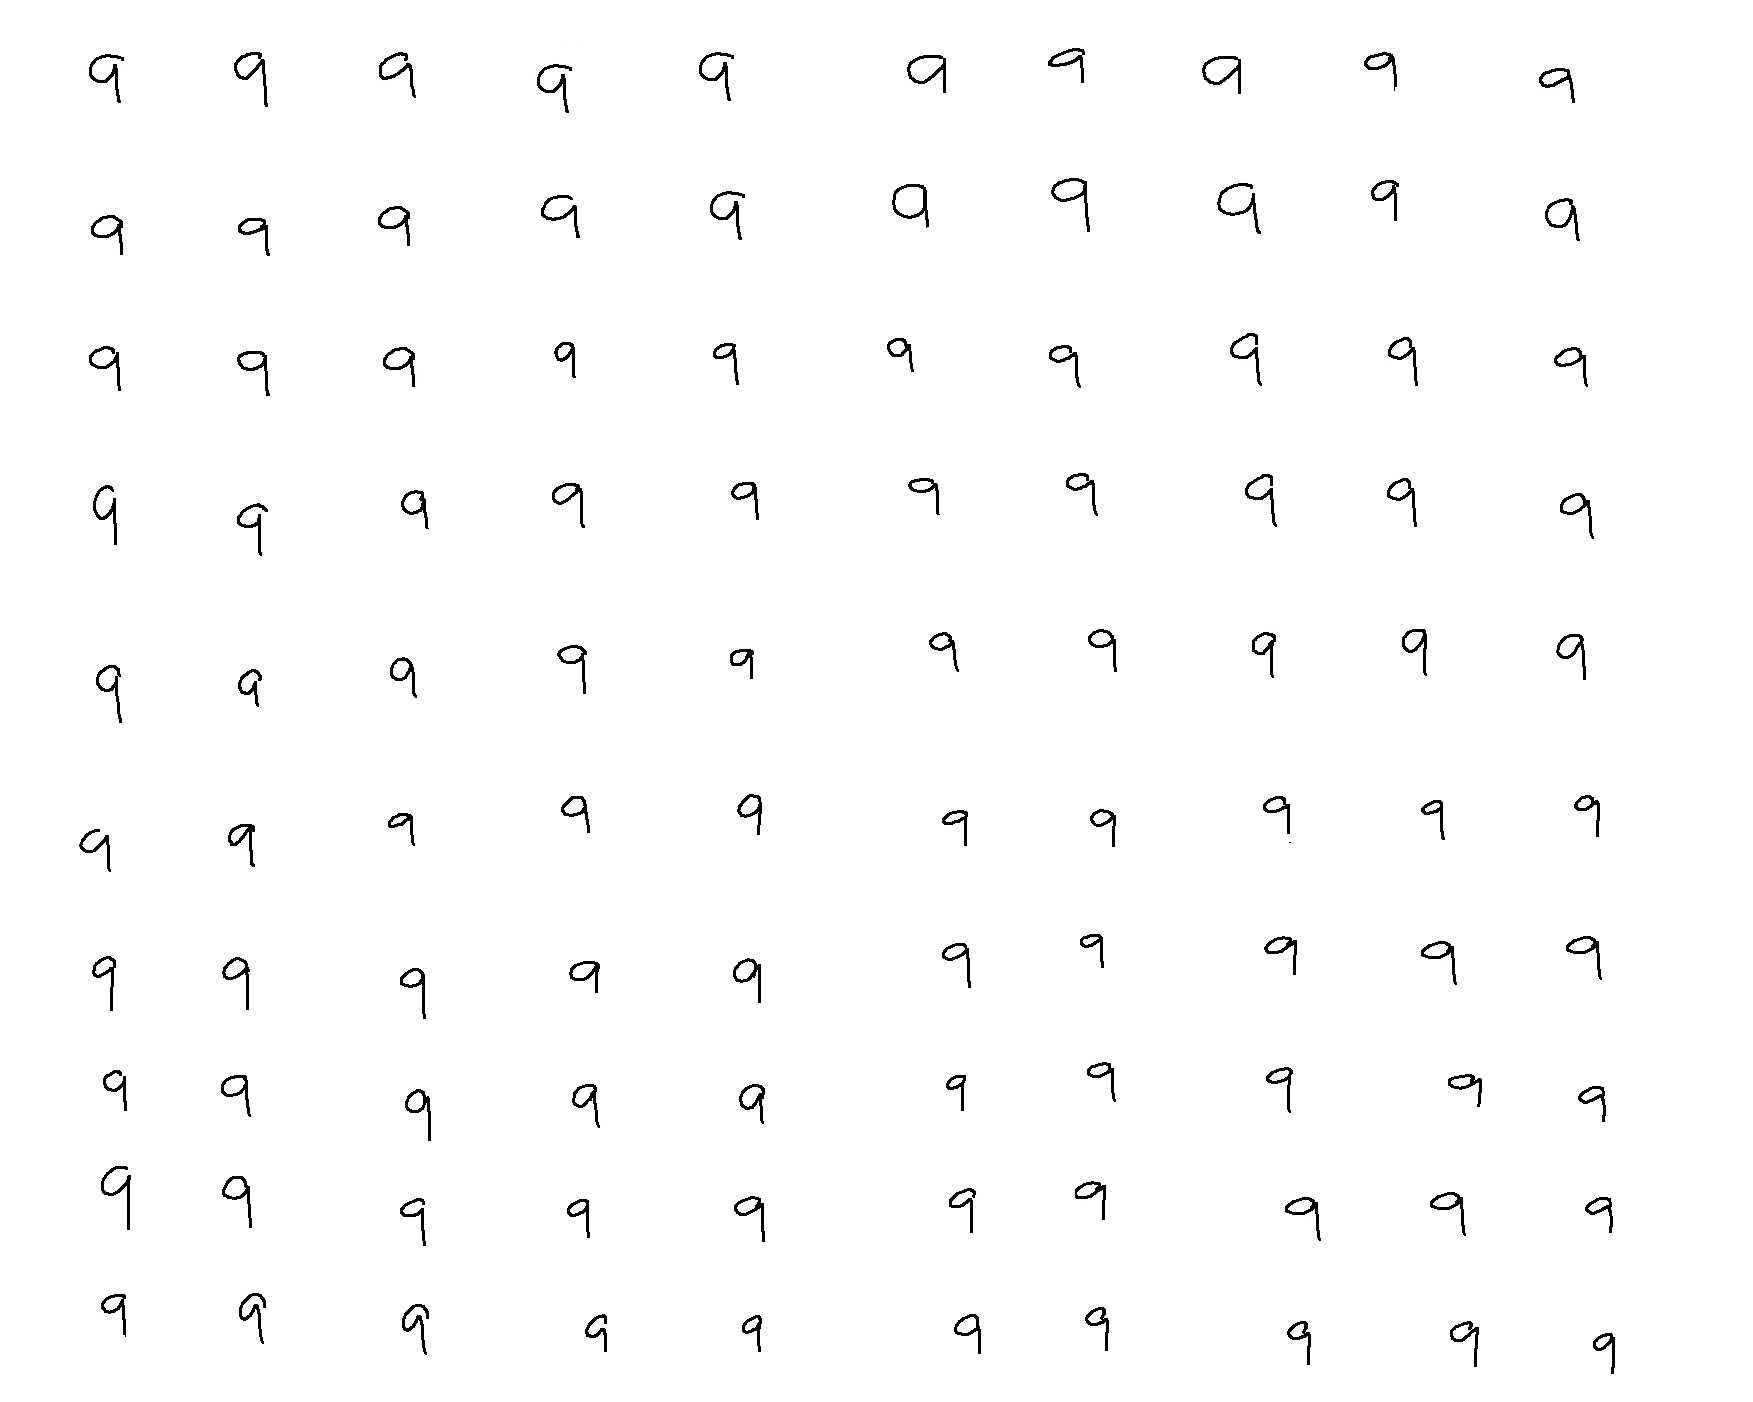 9 9 9 9 9 9 9 9 9 9
9 9 9 9 9 9 9 9 9 9
9 9 9 9 9 9 9 9 9 9
9 9 9 9 9 9 9 9 9 9
9 9 9 9 9 9 9 9 9 9
9 9 9 9 9 9 9 9 9 9
9 9 9 9 9 9 9 9 9 9
9 9 9 9 9 9 9 9 9 9
9 9 9 9 9 9 9 9 9 9
9 9 9 9 9 9 9 9 9 9